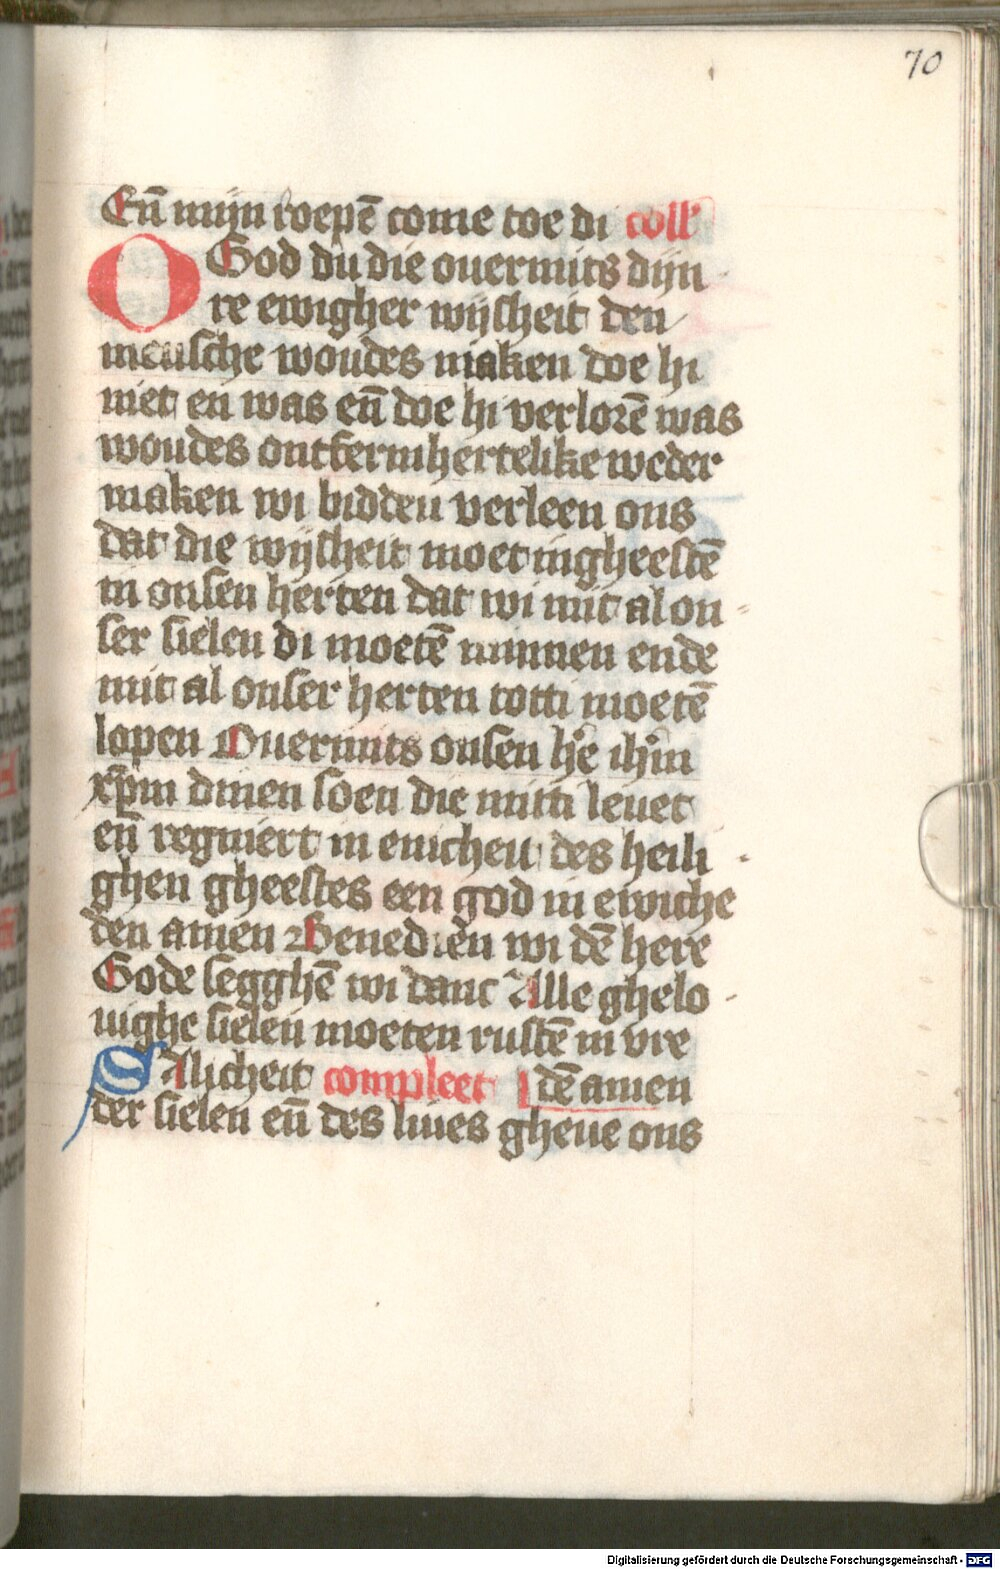 70
En̄ mijn roepē come toe di coll'
O God du die ouermits dijn
re ewigher wijsheit den
mensche woudes maken doe hi
niet en was en̄ doe hi verlorē was
woudes ontfermhertelike weder
maken wi bidden verleen ons
dat die wijsheit moet ingheestē
in onsen herten dat wi mit al on
ser sielen di moetē minnen ende
mit al onser herten totti moetē
lopen Ouermits onsen h̄e ih̄m
xp̄m dinen soen die mitti leuet
en̄ regniert in enicheit des heili
ghen gheestes een god in ewiche
den amen Benedien wi dē here
Gode segghē wi danc Alle ghelo
uighe sielen moeten rustē in vre
SAlicheit compleet dē amen
der sielen en̄ des liues gheue ons
Digitalisierung gefördert durch die Deutsche Forschungsgemeinschaft - DFG